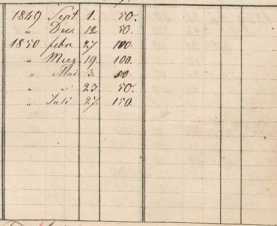 1849 Sept 1. 50.
" Dec 12. 50.
1850 Febr 27. 100.
" März 19. 100.
" Mai 3. 50
" " 23. 50.
" Juli 27. 150.